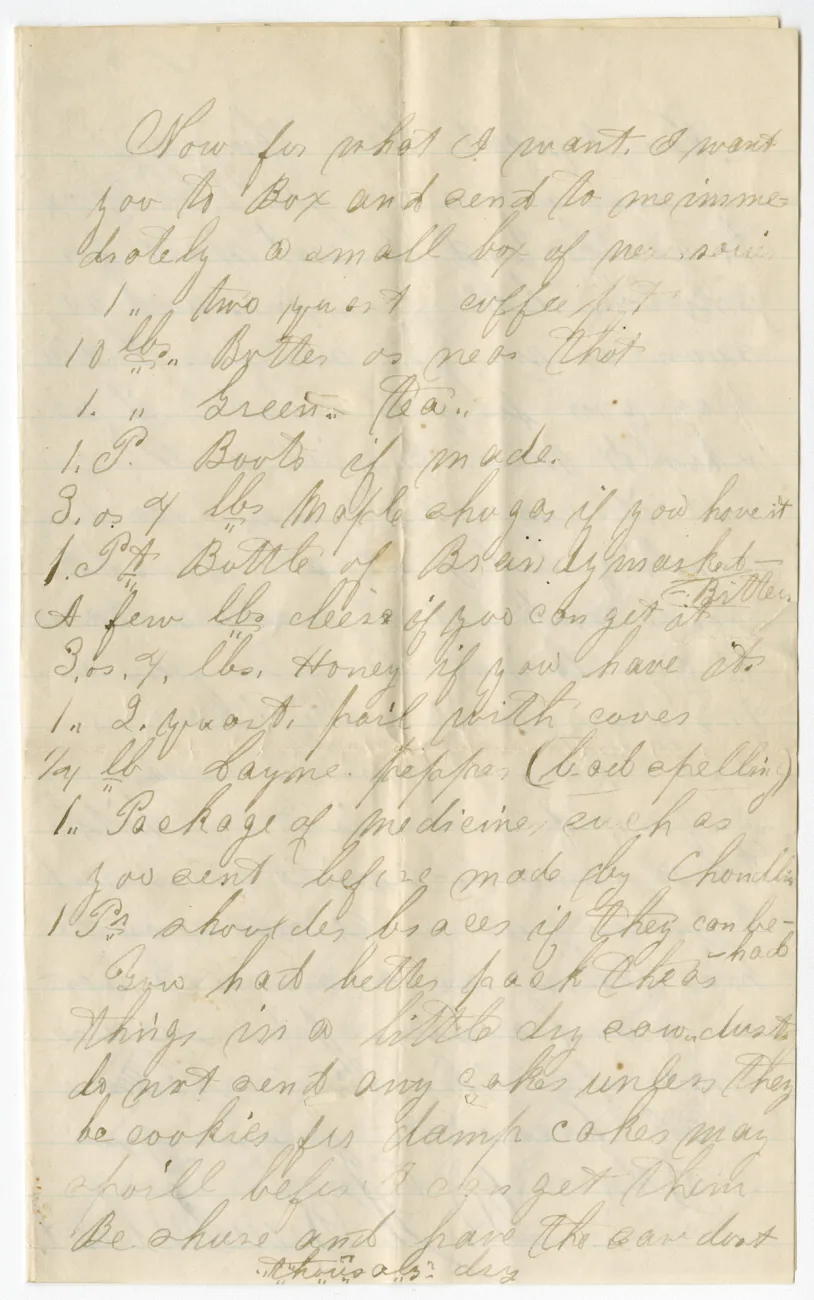 Now for what I want. I want
you to Box and send to me imme=
diately a small box of
1 " two quart coffee pot
10 lbs. " Butter or near that
1. " Green " tea "
1. P. Boots if made.
3. or 4 lbs Maple shugar if you have it
1. Pt Bottle of Brandy marked —
= Bitters
A few lbs cheese if you can get it
3. or. 4. lbs. Honey if you have it.
1 " 2. quart. pail with cover
1/4 lb Cayme. pepper (bad spelling)
1 " Package of medicine, such as
you sent before made by
1 Pr shoulder braces if they can be —
— had
You had better pack theas
things in a little dry saw-dust
do not send any cakes unless they
be cookies for damp cakes may
spoill before I can get them
Be shure and have the saw dust
dry